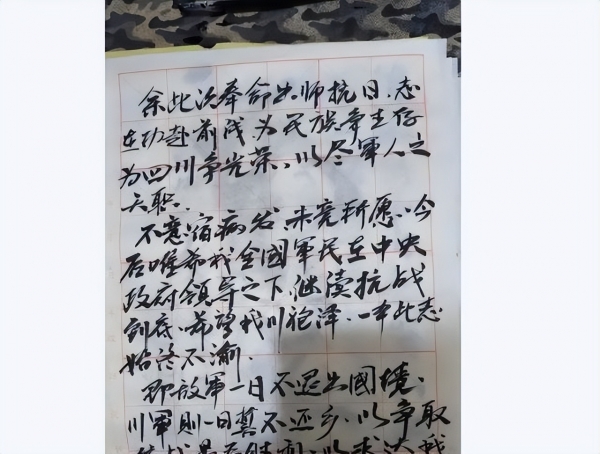 余此次奉命出师抗日、志
在功赴前戌为民族争生存
为四川争光荣、以尽軍人之
天职.
不意宿病发、未竟所愿、今
后唯希我全國軍民在中央
政府领导之下、继续抗战
到底、希望我川袍泽、一本此志
始终不渝
即敌軍一日不退出國境、
川軍則一日誓不还乡、以争取